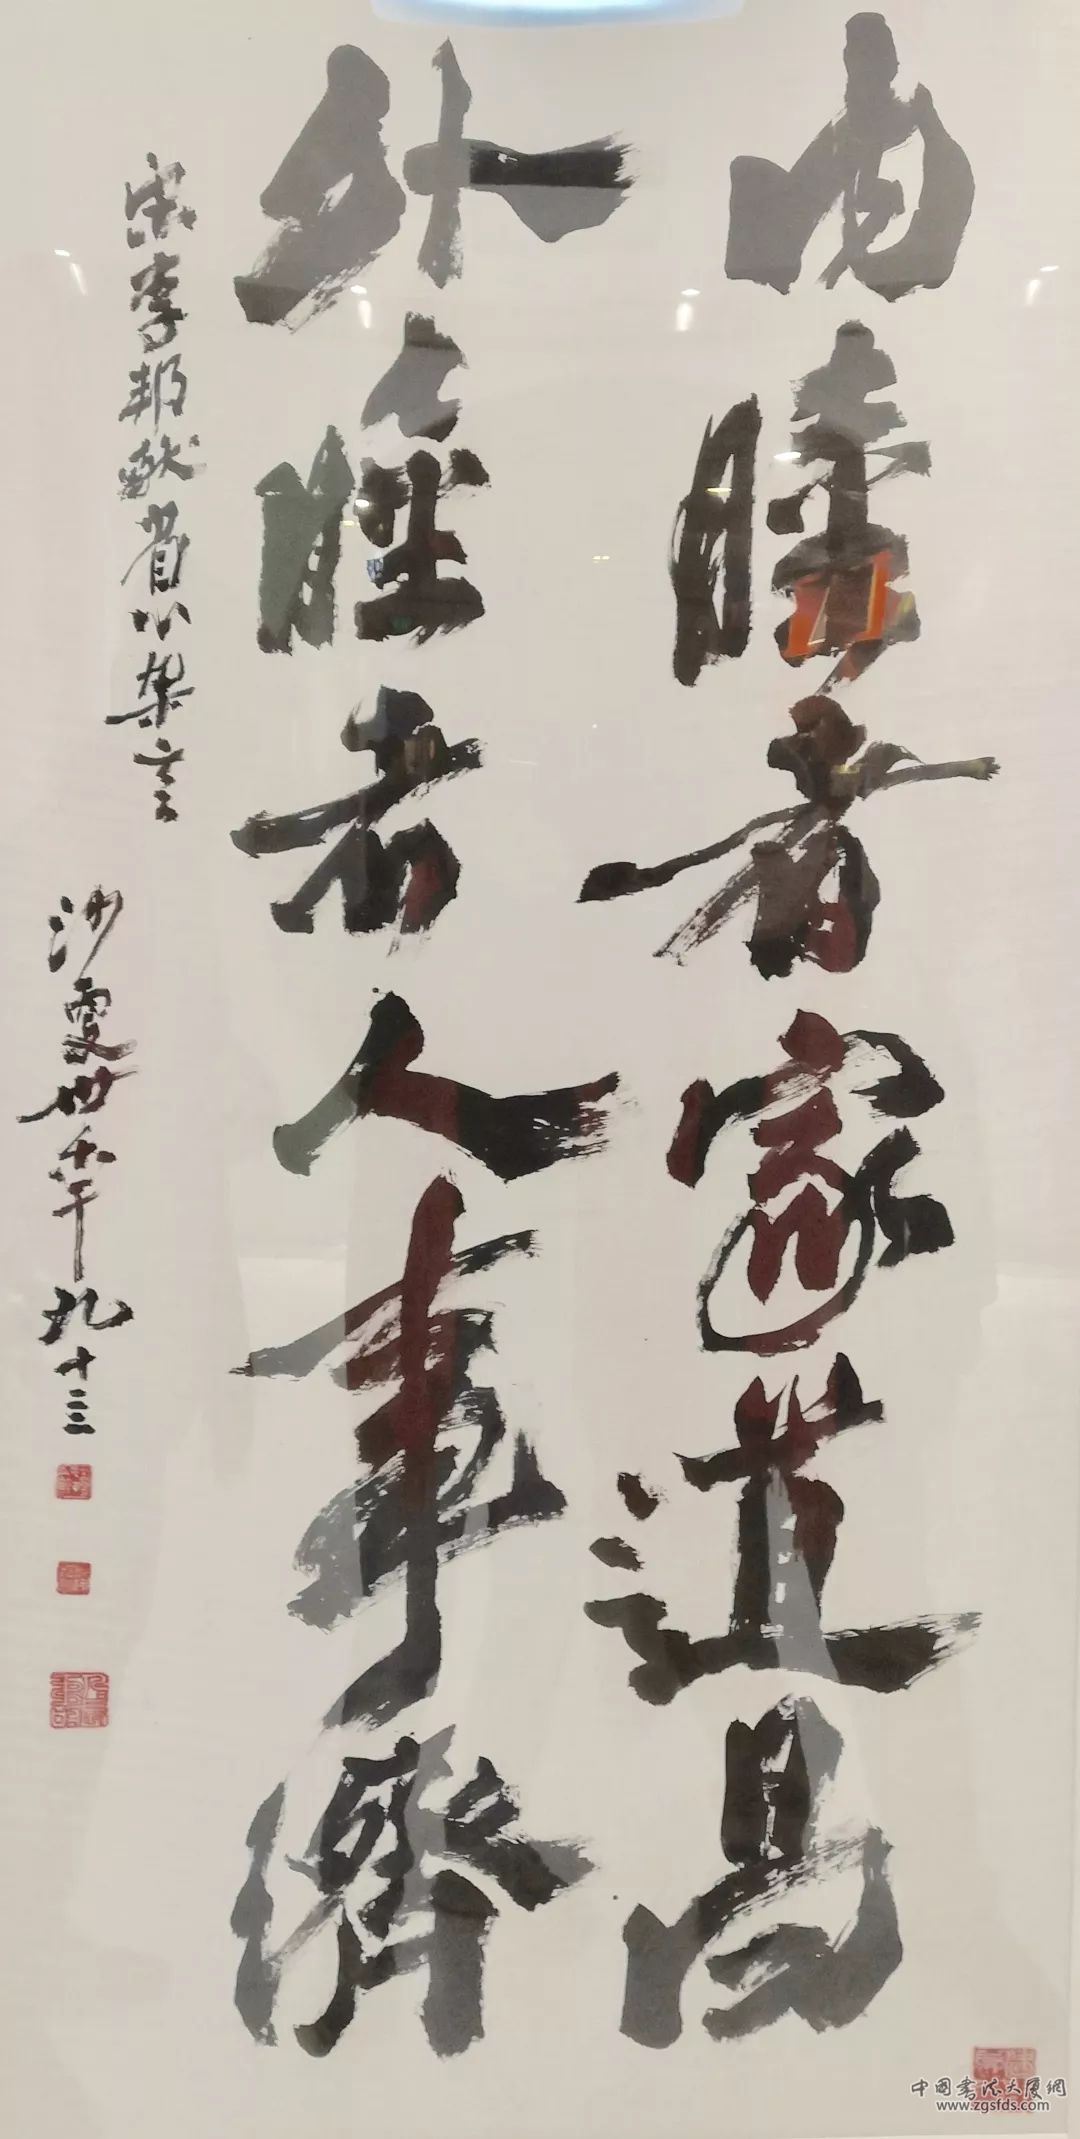 内睦者家道昌
外睦者人事濟
宋李邦献省心杂言
沙 年九十三
中國書法大廈網
www.zgsfds.com